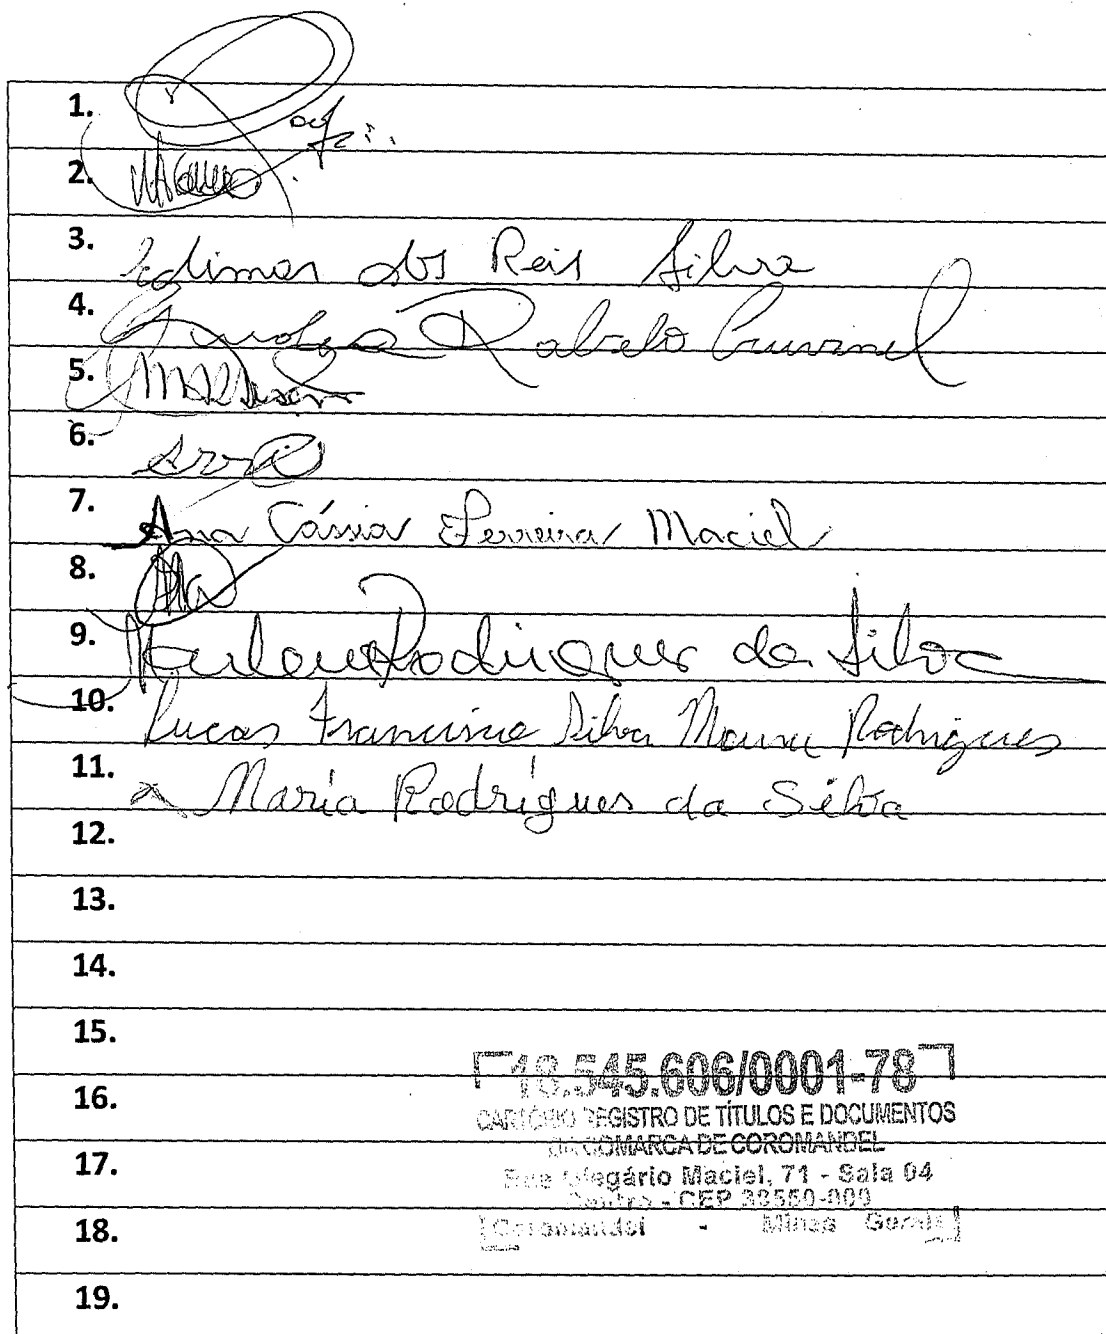 1.
2.
3. Edimar dos Reis Silva
4. Rabelo Cruvinel
5.
6.
7. Ana Cássia Ferreira Maciel
8.
9. Rodrigues da Silva
10. Lucas Francisco Silva Moura Rodrigues
11. Maria Rodrigues da Silva
12.
13.
14.
15.
18.545.606/0001-78
16.
CARTÓRIO REGISTRO DE TÍTULOS E DOCUMENTOS
DA COMARCA DE COROMANDEL
17.
Rua Olegário Maciel, 71 - Sala 04
Centro - CEP 38550-000
18. Coromandel - Minas Gerais
19.